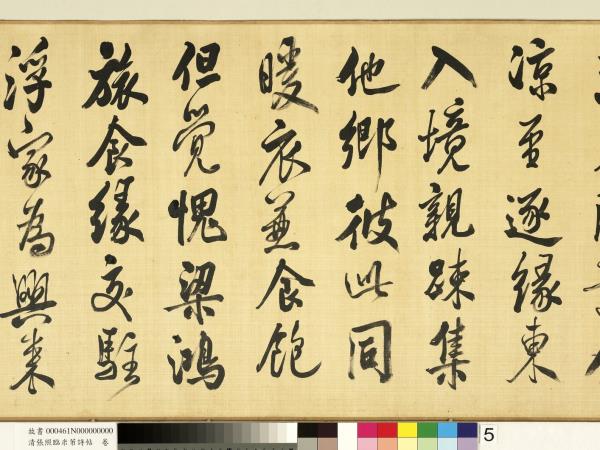 凉至逐緣東
入境親踈集
他鄉彼此同
暖衣兼食飽
但覺愧梁鴻
旅食緣交駐
浮家為興來
故書 000461N000000000
清張照臨米芾詩帖 卷
5